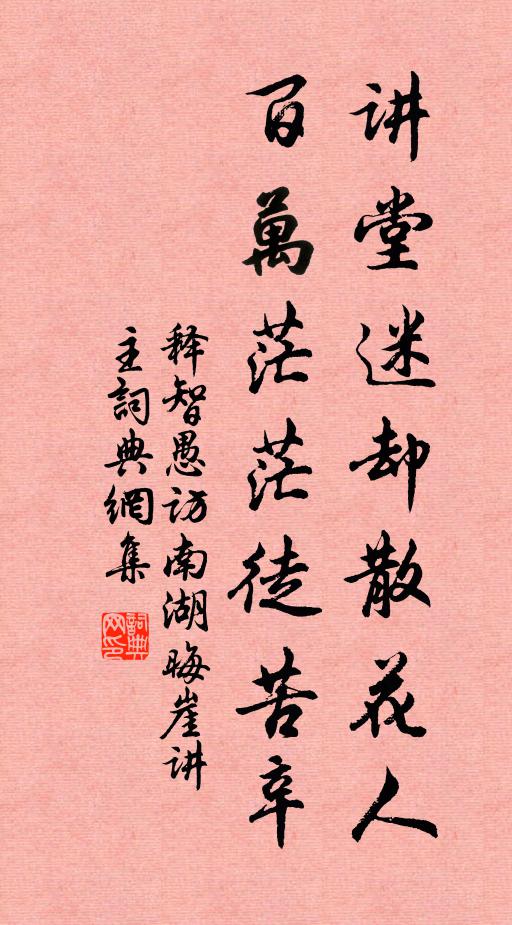 讲堂迷却散花人
百萬茫茫徒苦辛
释智愚访南湖晦崖讲
主詞典網集
詞典
网印